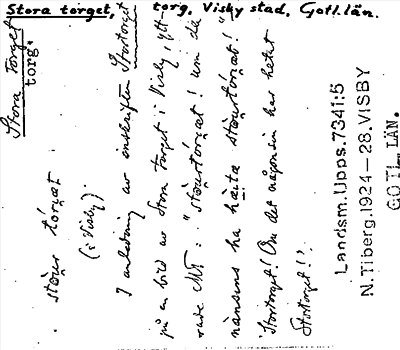 Stora torget, torg. Visby stad, Gotl. län.
Stora Torget
torg.
stōu̯r tórgat
(i Visby).
I anledning av inskriften Stortorget
på en bild av Stora Torget i Visby, ytt-
rade MT: "stōu̯rtórgat! um dä
nånsins ha häita stōu̯rtórgat!"
'Stortorget! Om det någonsin har hetat
Stortorget!'.
Landsm. Upps. 7341:5
N. Tiberg. 1924–28. VISBY
GOTL. LÄN.